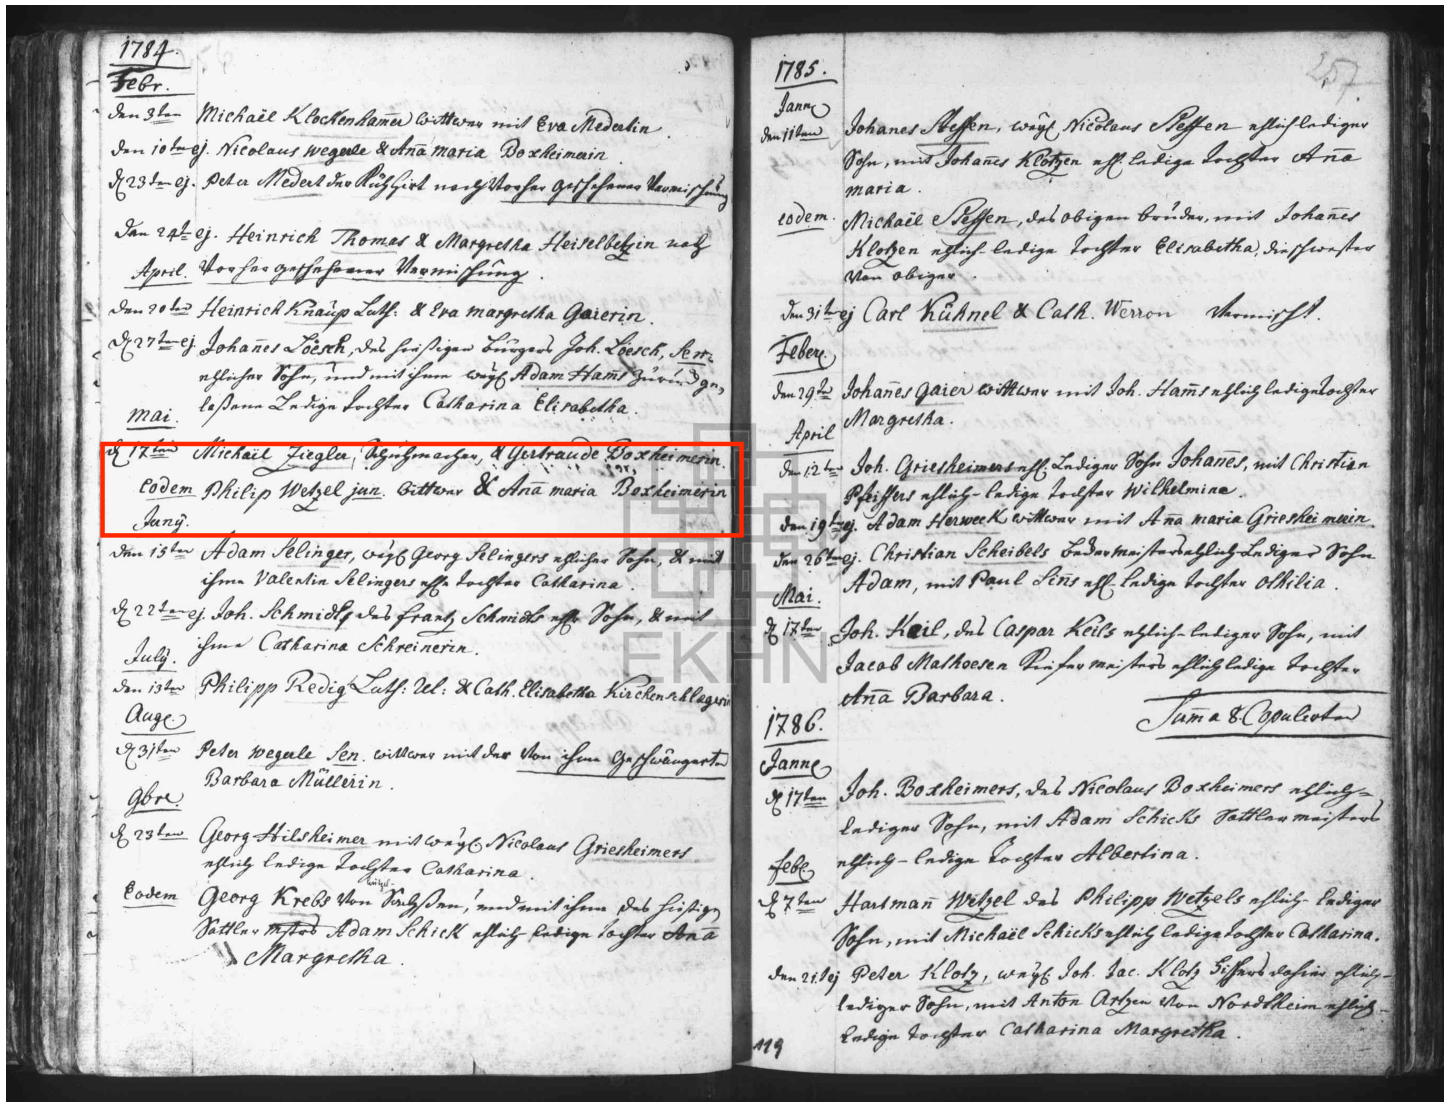 1784.
Febr.
den 3ten Michaël Klockenhamer wittwer mit Eva Medertin.
den 10ten ej. Nicolaus wegerle & Anna maria Boxheimerin.
d 23ten ej. Peter Medert der Kühhirt nach vorher geschehener Vermischung
den 24t ej. Heinrich Thomas & Margretha Heiselbetzin nach
April. vorher geschehener Vermischung.
den 20ten Heinrich Knaup Luth: & Eva margretha Gaierin.
d 27ten ej. Johañes Löesch, des hiesigen burgers Joh. Löesch, Sen:
ehlicher Sohn, und mit ihm weyl Adam Ham̃s zurück ge-
laßene Ledige tochter Catharina Elisabetha.
mai.
d 17ten Michaël Ziegler, Schuhmacher, & Gertraude Boxheimerin.
Eodem Philip Wetzel jun. wittwer & Añamaria Boxheimerin
Junÿ.
den 15ten Adam Selinger, weyl Georg Selingers ehlicher Sohn, & mit
ihme Valentin Selingers ehl. tochter Catharina.
d 22ten ej. Joh. Schmidt, des frantz Schmidts ehl. Sohn, & mit
ihme Catharina Schreinerin.
July.
den 13ten Philipp Redig Luth: Rel: & Cath. Elisabetha Kirchenschlagerin
Aug.
d 31ten Peter wegerle Sen. wittwer mit der von ihm geschwängerten
Barbara Müllerin.
9bre.
d 23ten Georg Hilsheimer mit weyl Nicolaus Griesheimers
ehlich ledige tochter Catharina.
Eodem Georg Krebs von und mit ihme des hiesigen
Sattler mstrs Adam Schick ehlich ledige tochter Aña
Margretha.
1785.
257
Jann
den 11ten Johañes Steffen, weyl Nicolaus Steffen ehlich lediger
Sohn, mit Johañes Klotzen ehl. ledige tochter Aña
maria.
eodem. Michaël Steffen, des obigen bruder, mit Johañes
Klotzen ehlich-ledige tochter Elisabetha, die schwester
von obiger.
den 31ten ej Carl Kühnel & Cath. Werron Vermischt.
Febr.
den 29te Johañes gaier wittwer mit Joh. Ham̃s ehlich ledige tochter
Margretha.
April
den 12te Joh. Griesheimers ehl. Lediger Sohn Johañes, mit Christian
Pfeiffers ehlich-ledige tochter Wilhelmina.
den 19ten ej. Adam Herweck wittwer mit Aña maria Griesheimerin
den 26ten ej. Christian Scheibels bedermeisters ehlich Lediger Sohn
Adam, mit Paul Siñs ehl. ledige tochter Othilia.
Mai.
d 17ten Joh. Keil, des Caspar Keils ehlich-lediger Sohn, mit
Jacob Mathoesen Kiefermeisters ehlich ledige tochter
Aña Barbara.
Sum̃a 8. Copulirten
1786.
Jann
d 17ten Joh. Boxheimers, des Nicolaus Boxheimers ehlich-
lediger Sohn, mit Adam Schicks Sattlermeisters
ehlich-ledige tochter Albertina.
feb.
d 7ten Hartmañ Wetzel des Philipp Wetzels ehlich-lediger
Sohn, mit Michaël Schicks ehlich ledige tochter Catharina.
den 21.t ej Peter Klotz, weyl Joh. Jac. Klotz dahier ehlich-
lediger Sohn, mit Anton Artzen von Nordtheim ehlich-
ledige tochter Catharina Margretha.
119
EKHN